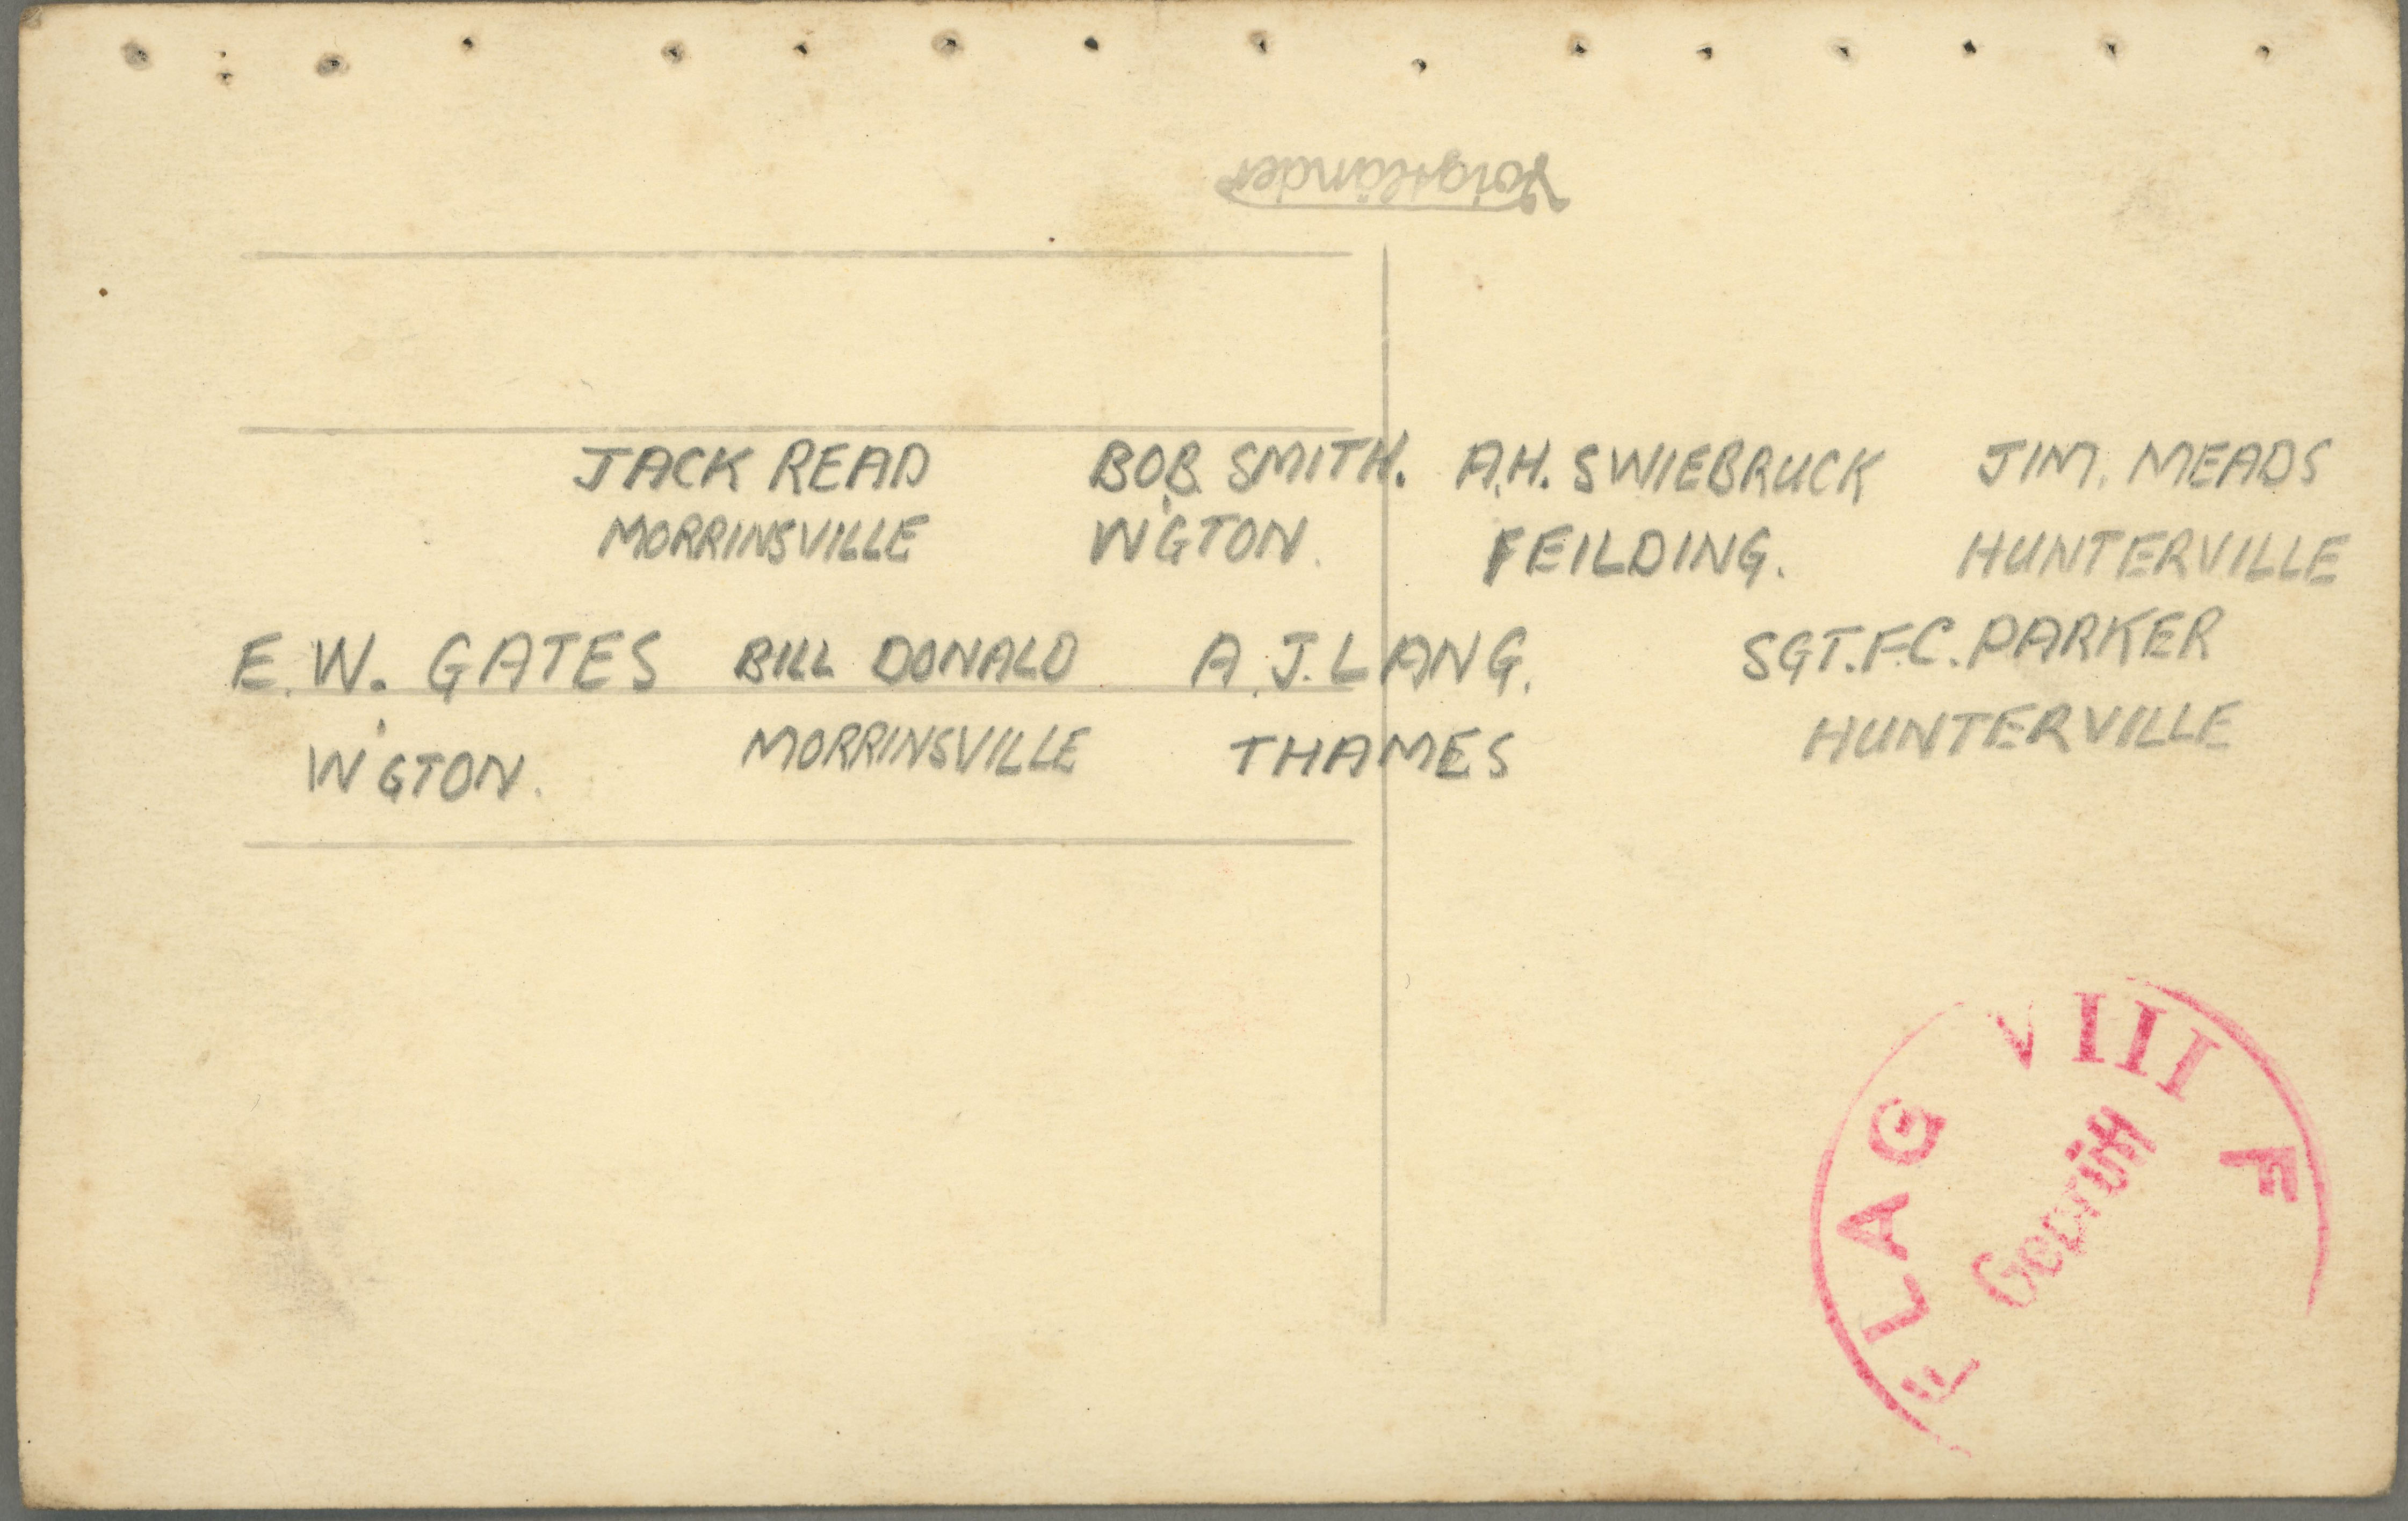 Voigtländer
JACK READ BOB SMITH. A.H. SWIEBRUCK JIM. MEADS
MORRINSVILLE W'GTON. FEILDING. HUNTERVILLE
E.W. GATES BILL DONALD A.J. LANG. SGT. F.C. PARKER
W'GTON. MORRINSVILLE THAMES HUNTERVILLE
FLAG VIII F
Geprüft